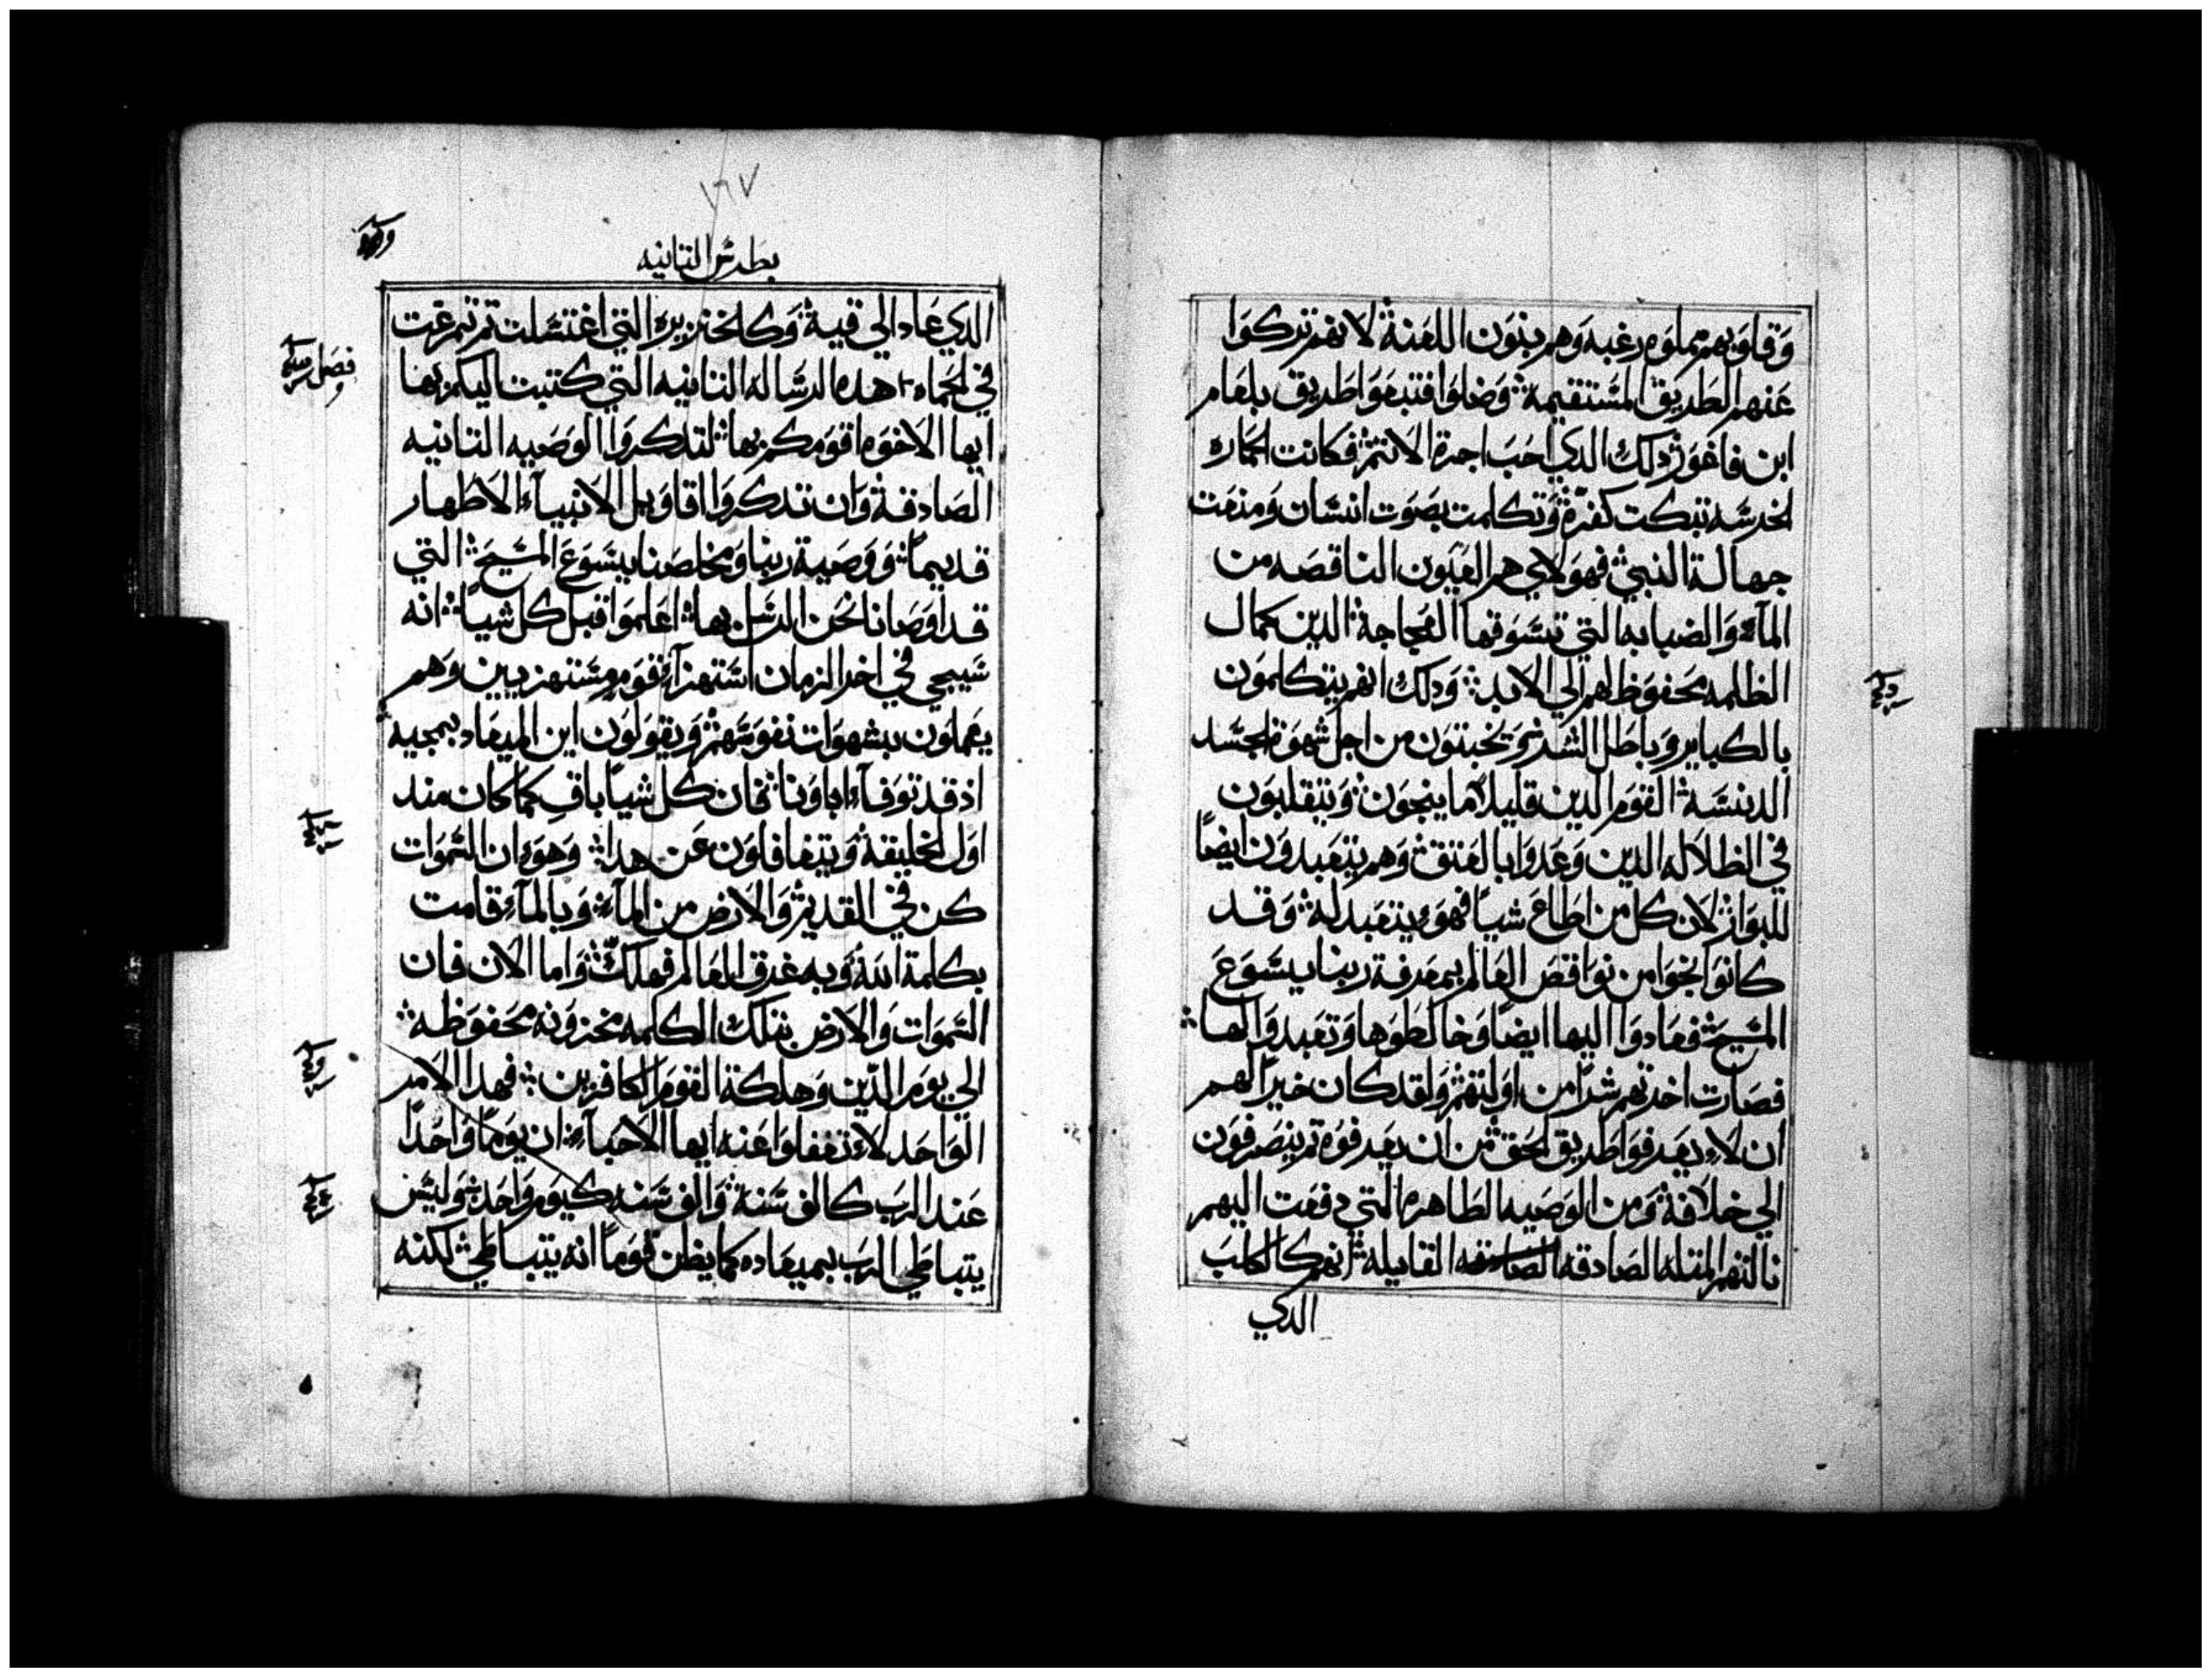 وَقلوَبهم مملوَه رغبه وَهم بنوَن اللعنة لانهم تركوَا
عَنهم الطَريق المسَتقيمة وَضلوَا فتبعوَا طَريق بلعام
ابن فاغوَر ذلك الدي احَبَ اجرة الاتم فكانت الحماره
الخرسَه تبكت كفره وَتكلمت بصَوَت انسَان وَمنعت
جهالة النبي فهوَلاي هم العيَوَن الناقصَه من
المآء وَالضبابه التي تسَوَقها العجاجة الدين كمال
الظلمه محَفوَظ لهم الي الابد وَدلك انهم يتكلموَن
بالكباير وَباطَل الشَر وَيخبتوَن من اجل شهوَة الجسَد
الدنسَة القوَم الدين قليلاً ما ينجوَن وَيتقلبوَن
في الظلاله الدين وَعَدوَا بالعَتق وَهم يتعَبدوَن ايضاً
للبوَار لان كل من اطَاعَ شياً فهوَ يتعَبد له وَقد
كانوَا نجوَا من نوَاقصَ العَالم بمعَرفة ربنا يسَوَعَ
المسَيحَ فعَادوَا اليها ايضاً وَخالطَوَها وَتعَبدوَا لها
فصَارت اخرتهم شراً من اوَلتهم وَلقد كان خيراً لهم
ان لا يعَرفوَا طَريق الحَق من ان يعَرفوَه تم ينصَرفوَن
الي خلافة وَمن الوَصَيه الطَاهره التي دفعَت اليهم
نالتهم المتله الصَادقه الصادقه القايلة انهم كالكلبَ
الدي
١٦٧
بطَرسَ التانيه
الدي عَاد الي قيه وَكالخنزيره التي اغتسَلت تم تمرغت
في الحَماه هده الرسَاله التانيه التي كتبت اليكم بها
ايها الاخوَه اقوَمكم بها لتدكروَا الوَصَيه التانيه
الصَادقة وَان تدكروَا اقاوَيل الانبيآء الاطَهار
قديماً وَوَصَية ربنا وَمخلصَنا يسَوَعَ المسَيحَ التي
قد اوَصَانا نحَن الرسَل بها اعَلموَا قبل كل شياً انه
سَيجي في اخر الزمان استهزآء قوَم مسَتهزيين وَهم
يعَملوَن بشهوَات نفوَسَهم وَيقوَلوَن اين الميعَاد بمجيه
اذ قد توَفآء اباوَنا فان كل شياً باقٍ كما كان مند
اوَل الخليقة وَيتغافلوَن عَن هدا وَهوَ ان السَموَات
كن في القديم وَالارض من المآء وَبالمآء قامت
بكلمة الله وَبه غرق العَالم فهلك وَاما الان فان
السَموَات وَالارض بتلك الكلمه مخزوَنه محَفوَظَه
الي يوَم الدّين وَهلكة القوَم الكافرين فهدا الامر
الوَاحَد لا تغفلوَا عَنه ايها الاحَبآء ان يوَماً وَاحَداً
عَند الربَ كالف سَنة وَالف سَنه كيوَم وَاحَد وَليسَ
يتباطَي الربَ بميعَاده كما يظن قوَماً انه يتباطَي لكنه
فصَل